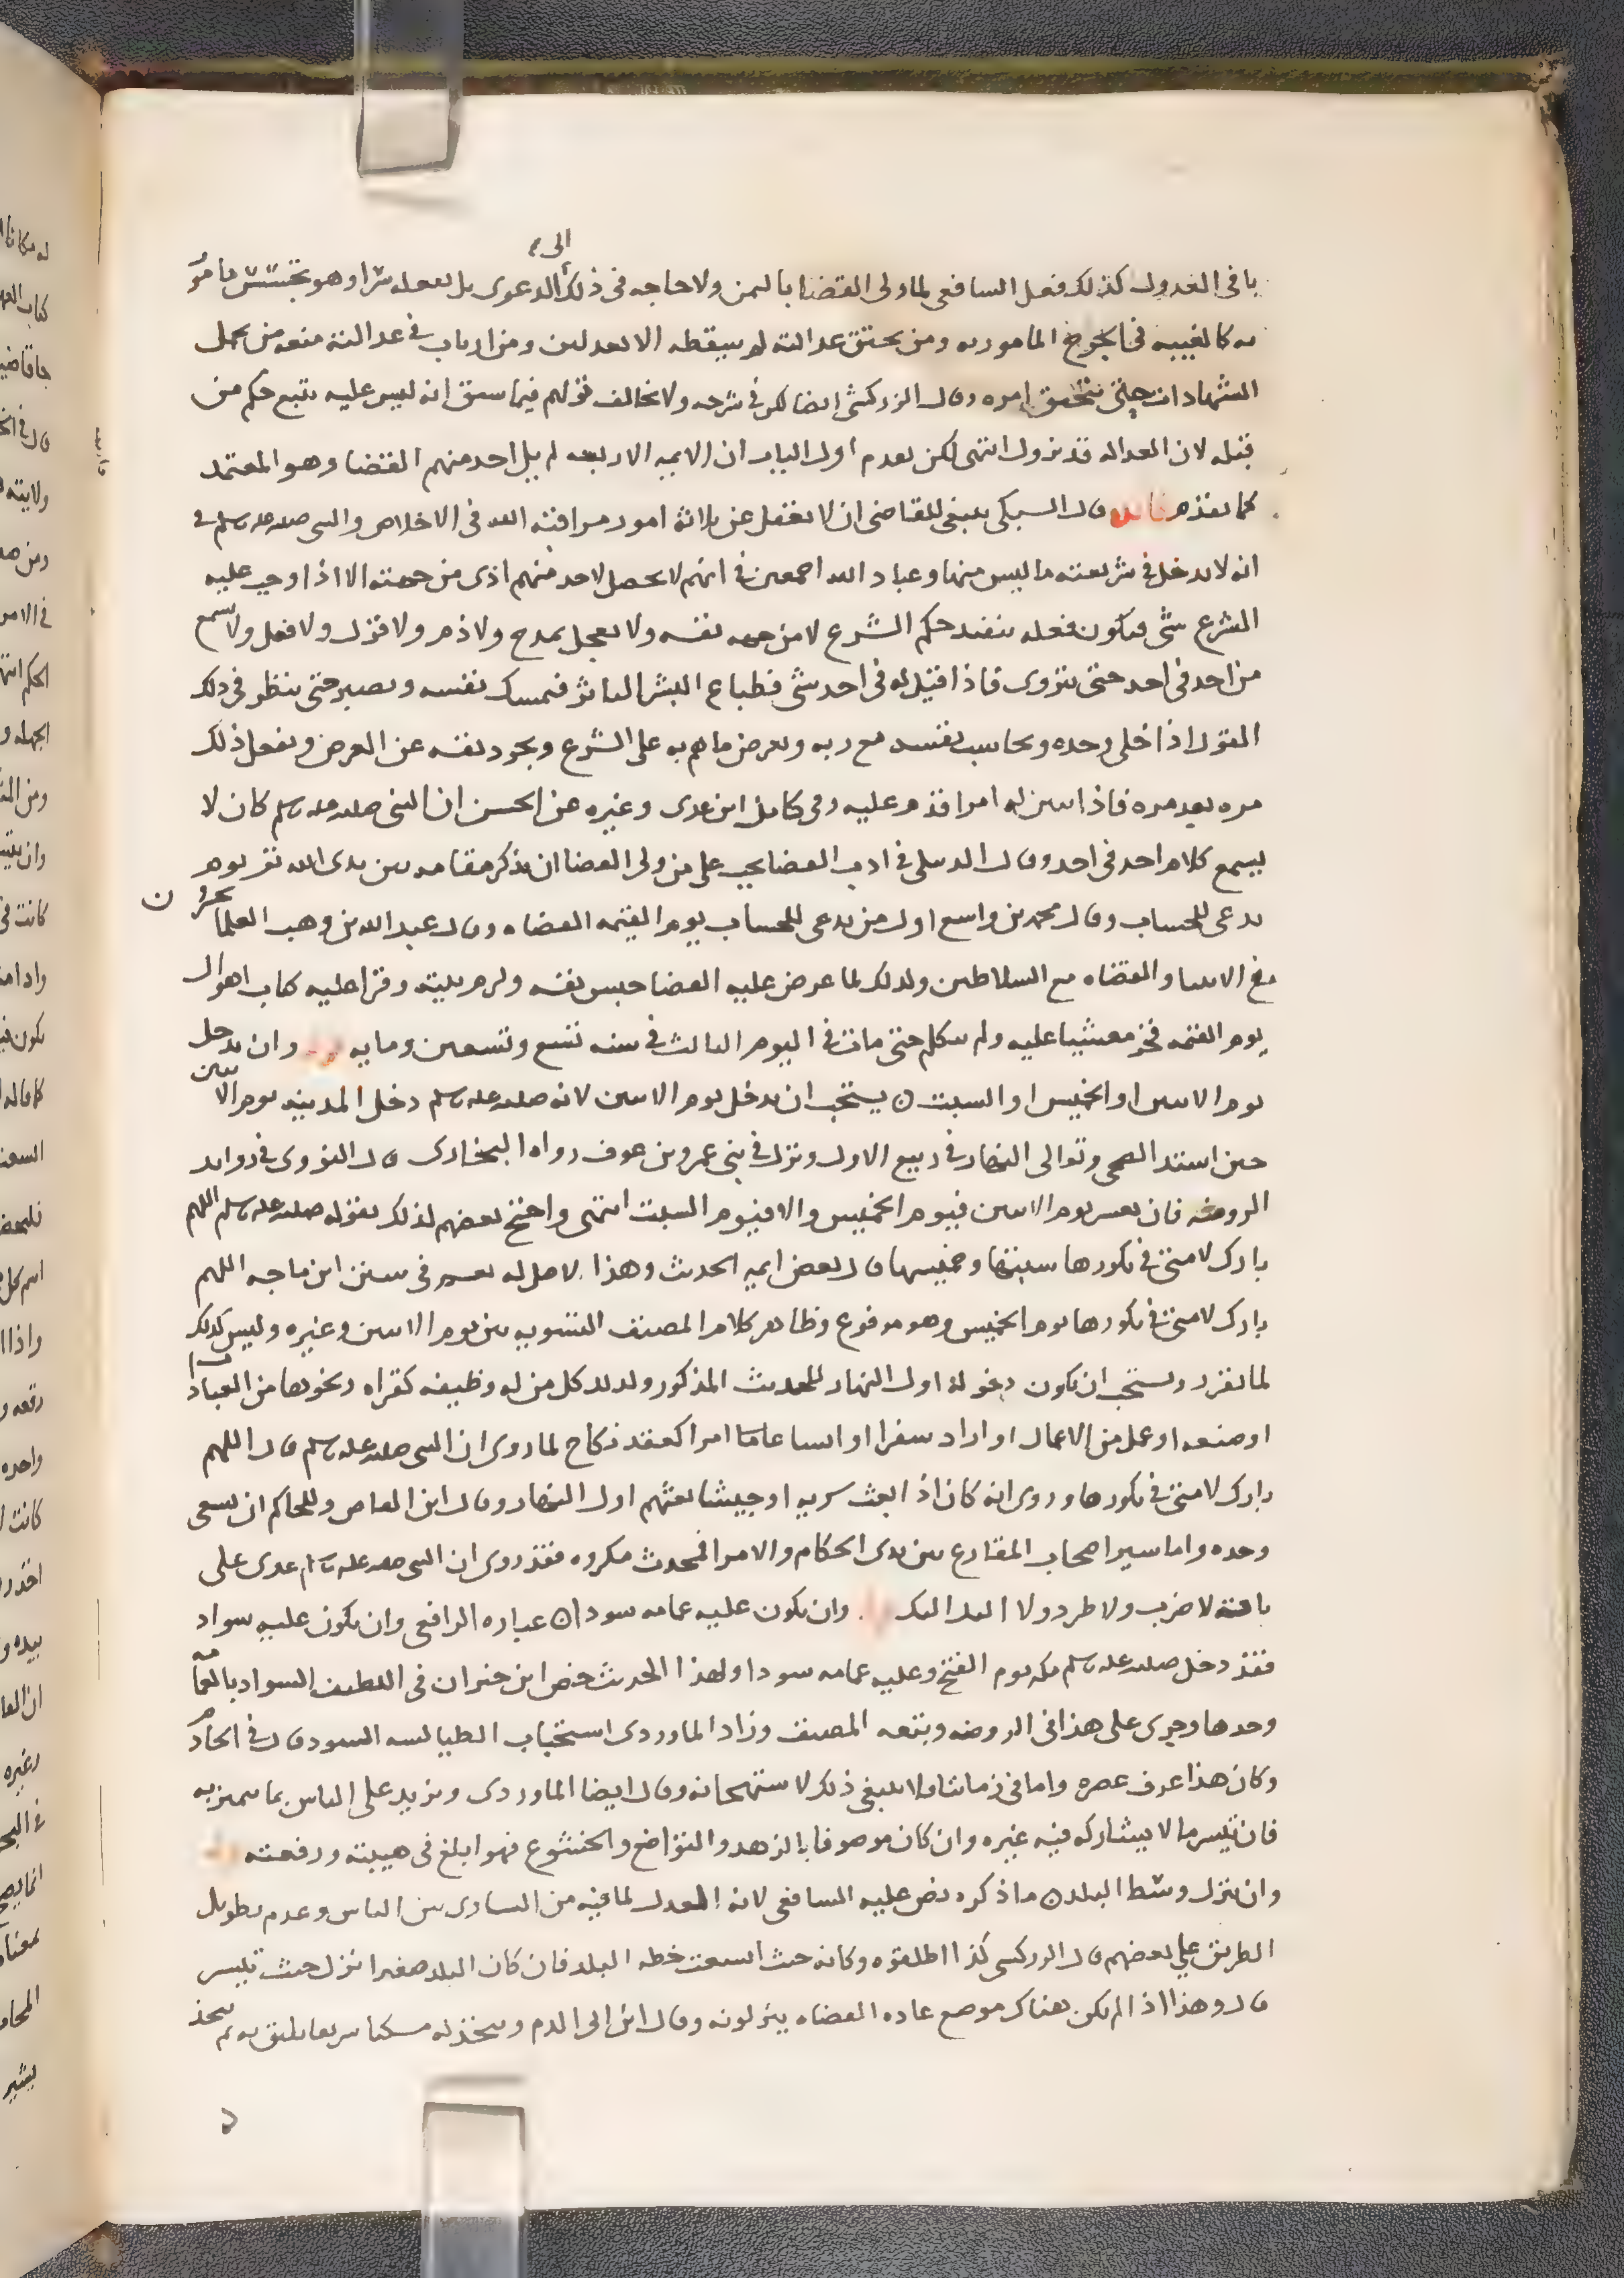 باقي العدول كذلك فعل الشافعي لما ولى القضا باليمن ولا حاجه في ذلك الى الدعوى بل يعمله سرا وهو تجسس مامو
به كالغيبه في الجرح المامور به ومن تحقق عدالته لم يسقطه الا بعدلين ومن ارتاب في عدالته منعه من تحمل
الشهادات حتى يتحقق امره وقال الزركشي ايضا لكن في شرحه ولا يخالف قولهم فيما سبق انه ليس عليه تتبع حكم من
قبله لان العداله قد تزول انتهى لكن تقدم اول الباب ان الايمه الاربعه لم يل احد منهم القضا وهو المعتمد
كما تقدم قال السبكي ينبغي للقاضي ان لا يغفل عن ثلاثة امور مراقبة الله في الاخلاص والنبي صلى الله عليه وسلم في
انه لا يدخل في شريعته ما ليس منها وعباد الله اجمعين في انهم لا يحصل لاحد منهم اذى من جهته الا اذا اوجب عليه
الشرع شي فيكون فعله تنفيذ حكم الشرع لا من جهه نفسه ولا يعجل بمدح ولا ذم ولا قول ولا فعل ولا يسمع
من احد في احد حتى يتروى فاذا قيل له في احد شي فطباع البشر التاثر فيمسك نفسه ويصبر حتى ينظر في ذلك
القول اذا خلى وحده ويحاسب نفسه مع ربه ويعرض ما هم به على الشرع ويجرد نفسه عن الغرض ويفعل ذلك
مره بعد مره فاذا استبن له امرا قدم عليه وفي كامل ابن عدى وغيره عن الحسن ان النبي صلى الله عليه وسلم كان لا
يسمع كلام احد في احد وقال الدبيلي في ادب القضا يجب على من ولى القضا ان يذكر مقامه بين يدى الله تعر يوم
يدعى للحساب وقال محمد بن واسع اول من يدعى للحساب يوم القيمه القضاه وقال عبد الله بن وهب العلما يحشرون
مع الانبيا والقضاه مع السلاطين ولذلك لما عرض عليه القضا حبس نفسه ولزم بيته وقرا عليه كتاب اهوال
يوم القيمه فخر مغشيا عليه ولم يتكلم حتى مات في اليوم الثالث في سنه تسع وتسعين ومايه وان يدخل
يوم الاثنين او الخميس او السبت ن يستحب ان يدخل يوم الاثنين لانه صلى الله عليه وسلم دخل المدينه يوم الاثنين
حين اشتد الضحى وتوالى النهار في ربيع الاول ونزل في بني عمرو بن عوف رواه البخارى قال النووى في زوايد
الروضه فان تعسر يوم الاثنين فيوم الخميس والا فيوم السبت انتهى واحتج بعضهم لذلك بقوله صلى الله عليه وسلم اللهم
بارك لامتى في بكورها سبتها وخميسها قال بعض ايمه الحديث وهذا لا اصل له نعم في سنن ابن ماجه اللهم
بارك لامتى في بكورها يوم الخميس وهو مرفوع وظاهر كلام المصنف التسويه بين يوم الاثنين وغيره وليس كذلك
لما تقرر ويستحب ان يكون دخوله اول النهار للحديث المذكور ولذلك كل من له وظيفه كقراه ونحوها من العبادات
او صنعه او عمل من الاعمال او اراد سفرا او انسا عاما امرا كعقد نكاح لما روى ان النبي صلى الله عليه وسلم قال اللهم
بارك لامتى في بكورها وروى انه كان اذا بعث سريه او جيشا بعثهم اول النهار وقال ابن القاص وللحاكم ان يسعى
وحده واما سير اصحاب المقارع بين يدى الحكام والامرا فمحدث مكروه فقد روى ان النبي صلى الله عليه وسلم عدى على
ناقته لا ضرب ولا طرد ولا اليك اليك وان يكون عليه عمامه سودا ن عباره الرافعي وان يكون عليه سواد
فقد دخل صلى الله عليه وسلم مكه يوم الفتح وعليه عمامه سودا ولهذا الحديث خص ابن خيران في اللطيف السواد بالعمامه
وحدها وجرى على هذا في الروضه وتبعه المصنف وزاد الماوردى استحباب الطيالسه السود قال في الخادم
وكان هذا عرف عصره واما في زماننا فلا ينبغي ذلك لاستهجانه وقال ايضا الماوردى ويزيد على الناس بما يتميز به
فان تيسر ما لا يشاركه فيه غيره وان كان موصوفا بالزهد والتواضع والخشوع فهو ابلغ في هيبته ورفعته
وان ينزل وسط البلد ن ما ذكره نص عليه الشافعي لانه اعدل لما فيه من التساوى بين الناس وعدم تطويل
الطريق على بعضهم قال الزركشي كذا اطلقوه وكانه حيث اتسعت خطه البلد فان كان البلد صغيرا نزل حيث تيسر
قال وهذا اذا لم يكن هناك موضع عاده القضاه ينزلونه وقال ابن ابى الدم ويتخذ له مسكنا سريعا يليق به ثم يتخذ